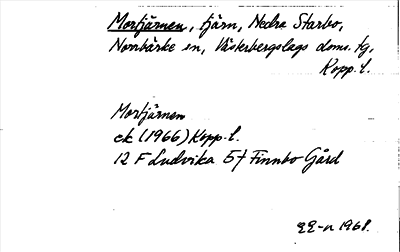 Mortjärnen, tjärn, Nedra Starbo,
Norrbärke sn, Västerbergslags doms. tg,
Kopp. l.
Mortjärnen
ek (1966) Kopp. l.
12 F Ludvika 5 f Finnbo Gård
1968.